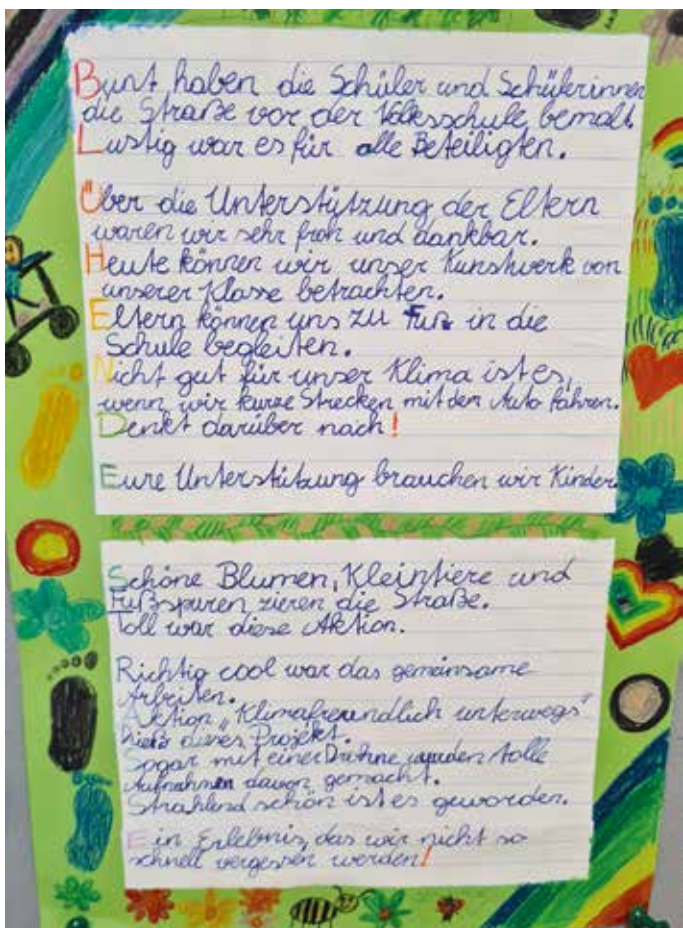 Bunt haben die Schüler und Schülerinnen
die Straße vor der Volksschule bemalt.
Lustig war es für alle Beteiligten.
Über die Unterstützung der Eltern
waren wir sehr froh und dankbar.
Heute können wir unser Kunstwerk von
unserer Klasse betrachten.
Eltern können uns zu Fuß in die
Schule begleiten.
Nicht gut für unser Klima ist es,
wenn wir kurze Strecken mit dem Auto fahren.
Denkt darüber nach!
Eure Unterstützung brauchen wir Kinder
Schöne Blumen, Kleintiere und
Fußspuren zieren die Straße.
Toll war diese Aktion.
Richtig cool war das gemeinsame
Arbeiten.
Aktion „Klimafreundlich unterwegs"
hieß dieses Projekt.
Sogar mit einer Drohne wurden tolle
Aufnahmen davon gemacht.
Strahlend schön ist es geworden.
Ein Erlebnis, das wir nicht so
schnell vergessen werden!